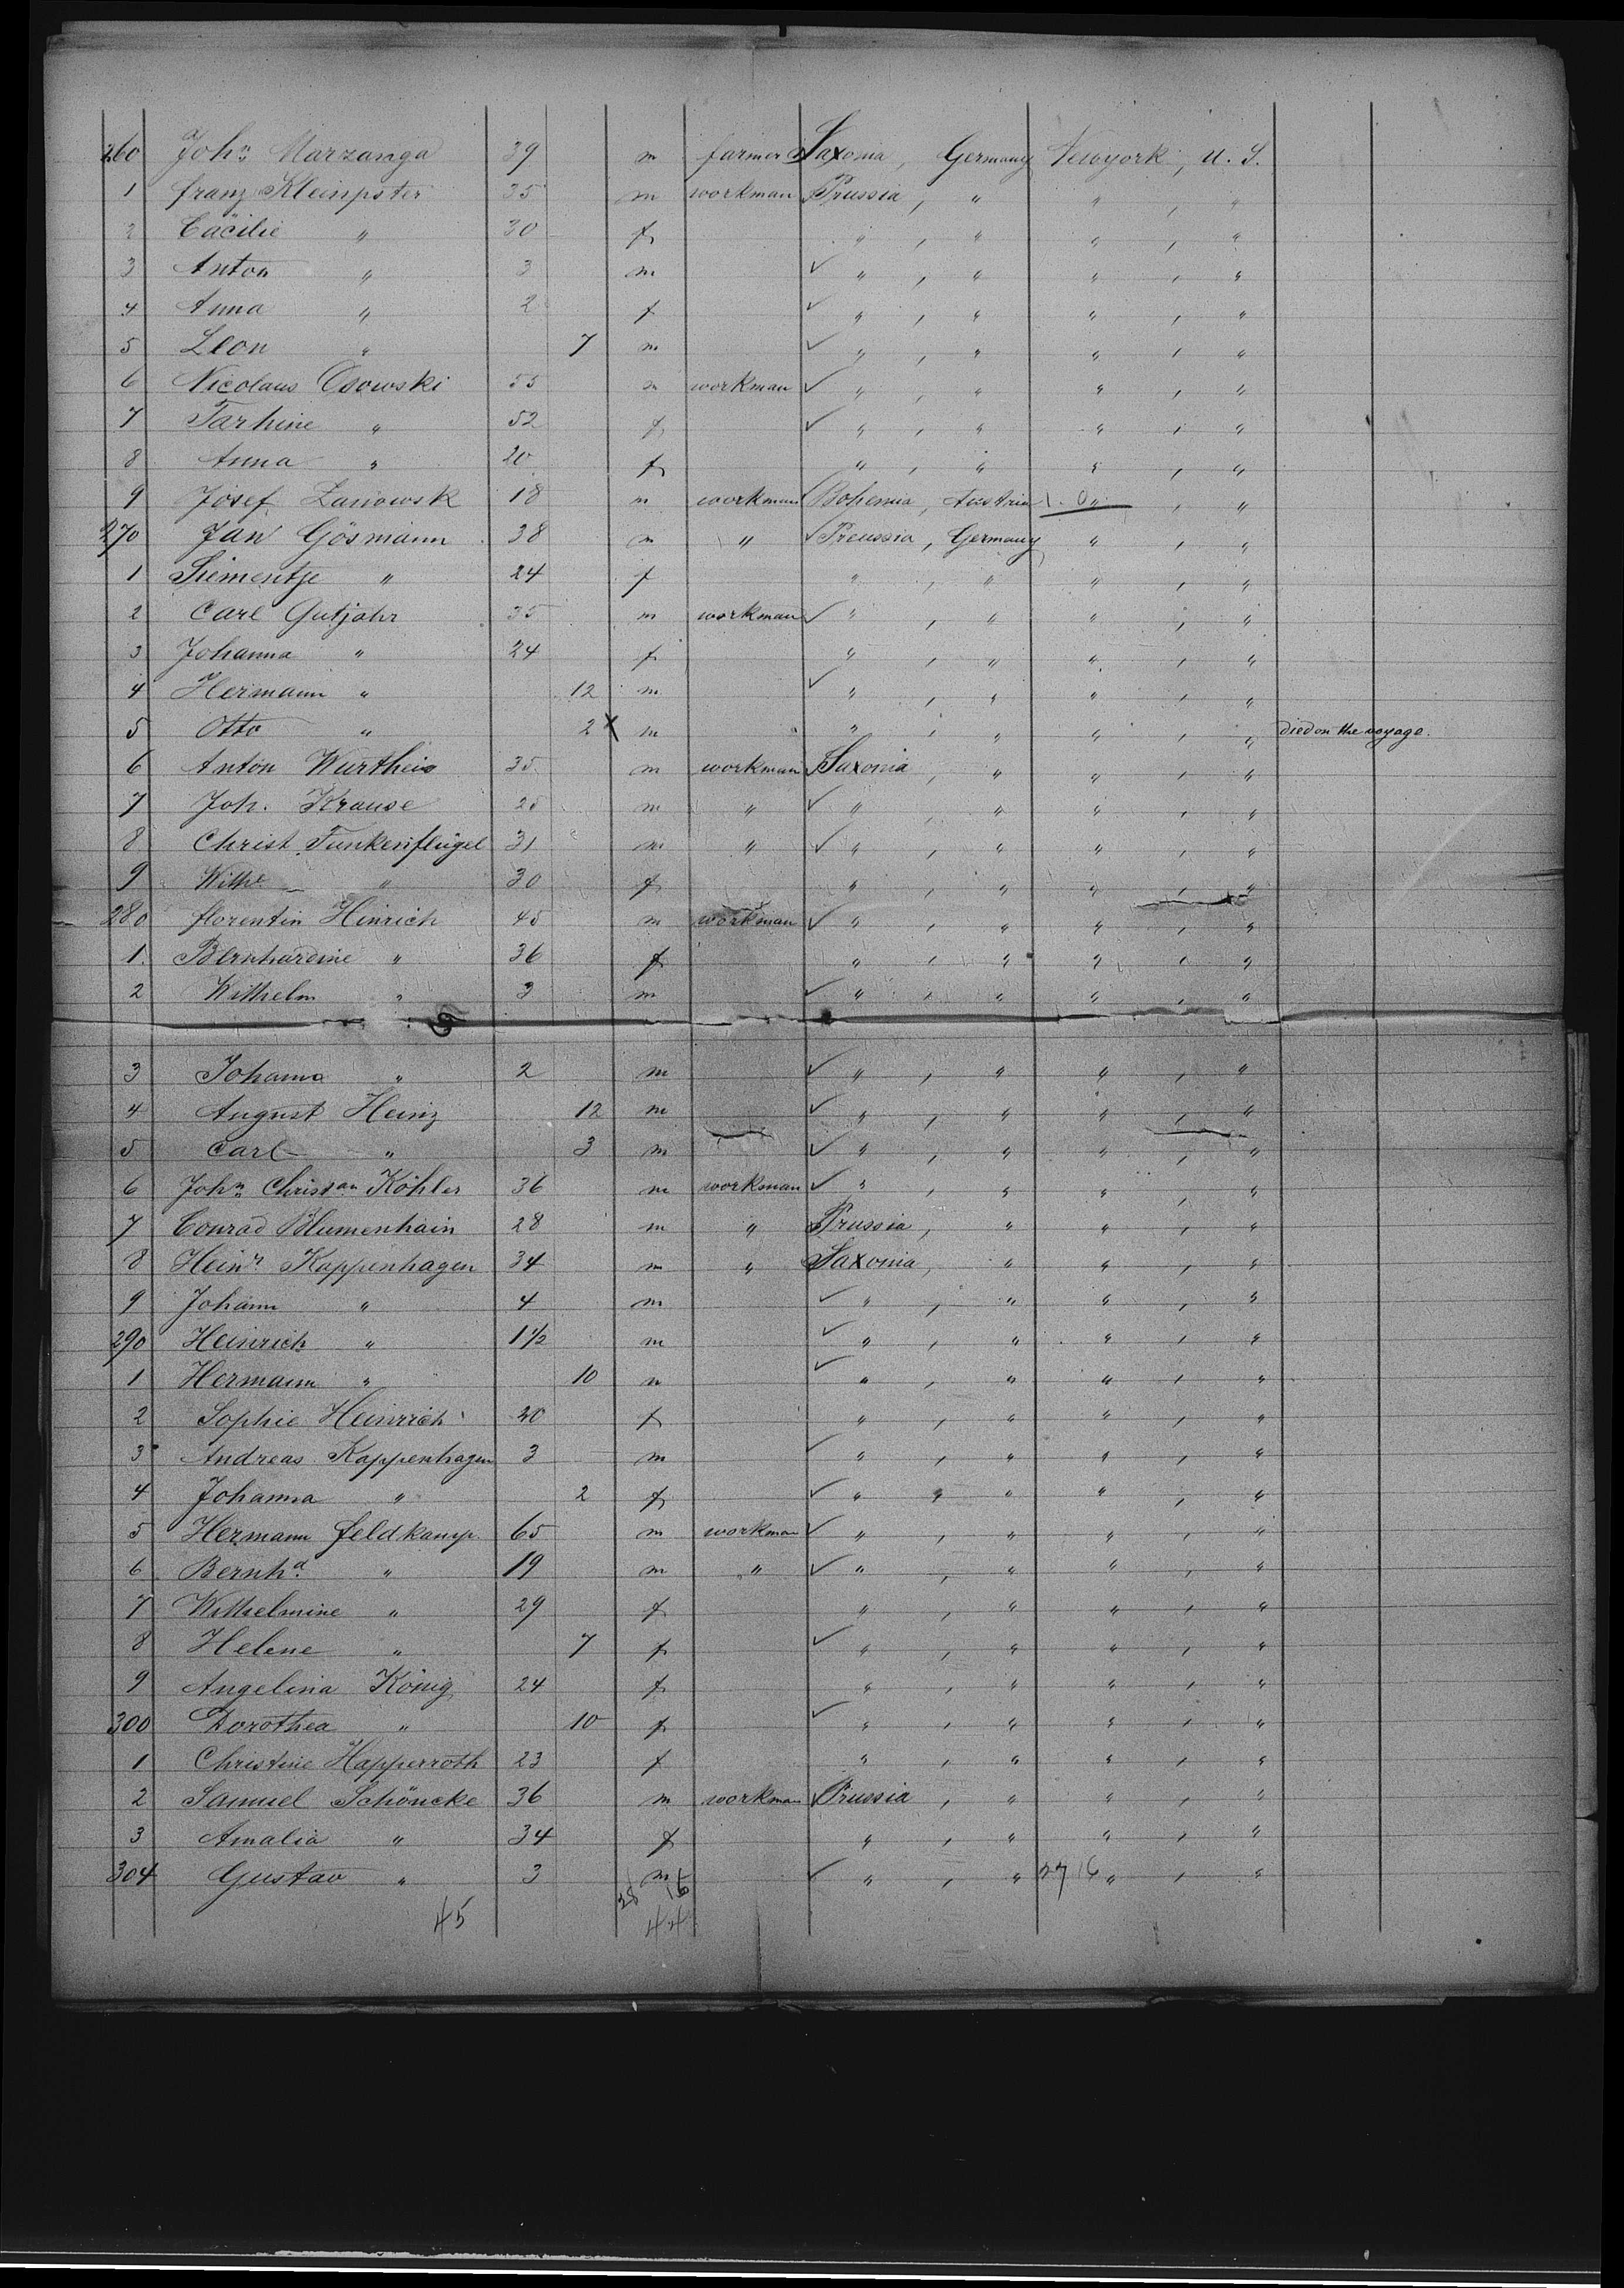 260 Johⁿ Marzanga 39 m farmer Saxonia, Germany Newyork, U. S.
1 franz Kleinpster 35 m workman Prussia, " " , "
2 Cäcilie " 30 f " , " " , "
3 Anton " 3 m ✓ " , " " , "
4 Anna " 2 f ✓ " , " " , "
5 Leon " 7 m ✓ " , " " , "
6 Nicolaus Osowski 55 m workman ✓ " , " " , "
7 Tarhine " 52 f ✓ " , " " , "
8 Anna " 20 f " , " " , "
9 Josef Zanowsk 18 m workman Bohemia, Austria " , "
270 Jan Gösmann 38 m " ✓ Preussia, Germany " , "
1 Siementje " 24 f " , " " , "
2 Carl Gutjahr 35 m workman ✓ " , " " , "
3 Johanna " 24 f " , " " , "
4 Hermann " 12 m ✓ " , " " , "
5 Otto " 2 x m " , " " , " died on the voyage.
6 Anton Wurtheis 35 m workman Saxonia, " " , "
7 Joh. Krause 25 m " ✓ " , " " , "
8 Christ Funkenflügel 31 m " ✓ " , " " , "
9 Wilhᵉ " 30 f " , " " , "
280 florentin Hinrich 45 m workman ✓ " , " " , "
1. Bernhardine " 36 f " , " " , "
2 Wilhelm " 3 m ✓ " , " " , "
3 Johanna " 2 m ✓ " , " " , "
4 August Heinz 12 m ✓ " , " " , "
5 Carl " 3 m ✓ " , " " , "
6 Johⁿ Christᵃⁿ Köhler 36 m workman ✓ " , " " , "
7 Conrad Blumenhain 28 m " Prussia, " " , "
8 Heinʳ Kappenhagen 34 m " Saxonia, " " , "
9 Johann " 4 m ✓ " , " " , "
290 Heinrich " 1½ m ✓ " , " " , "
1 Hermann " 10 m ✓ " , " " , "
2 Sophie Heinrich 20 f " , " " , "
3 Andreas Kappenhagen 3 m ✓ " , " " , "
4 Johanna " 2 f ✓ " , " " , "
5 Hermann feldkamp 65 m workman ✓ " , " " , "
6 Bernhᵈ " 19 m " ✓ " , " " , "
7 Wilhelmine " 29 f " , " " , "
8 Helene " 7 f ✓ " , " " , "
9 Angelina König 24 f " , " " , "
300 Dorothea " 10 f ✓ " , " " , "
1 Christine Happerroth 23 f " , " " , "
2 Samuel Schöncke 36 m workman Prussia, " " , "
3 Amalia " 34 f " , " " , "
304 Gustav " 3 m ✓ " , " 27 16 " , "
45 28 16
44